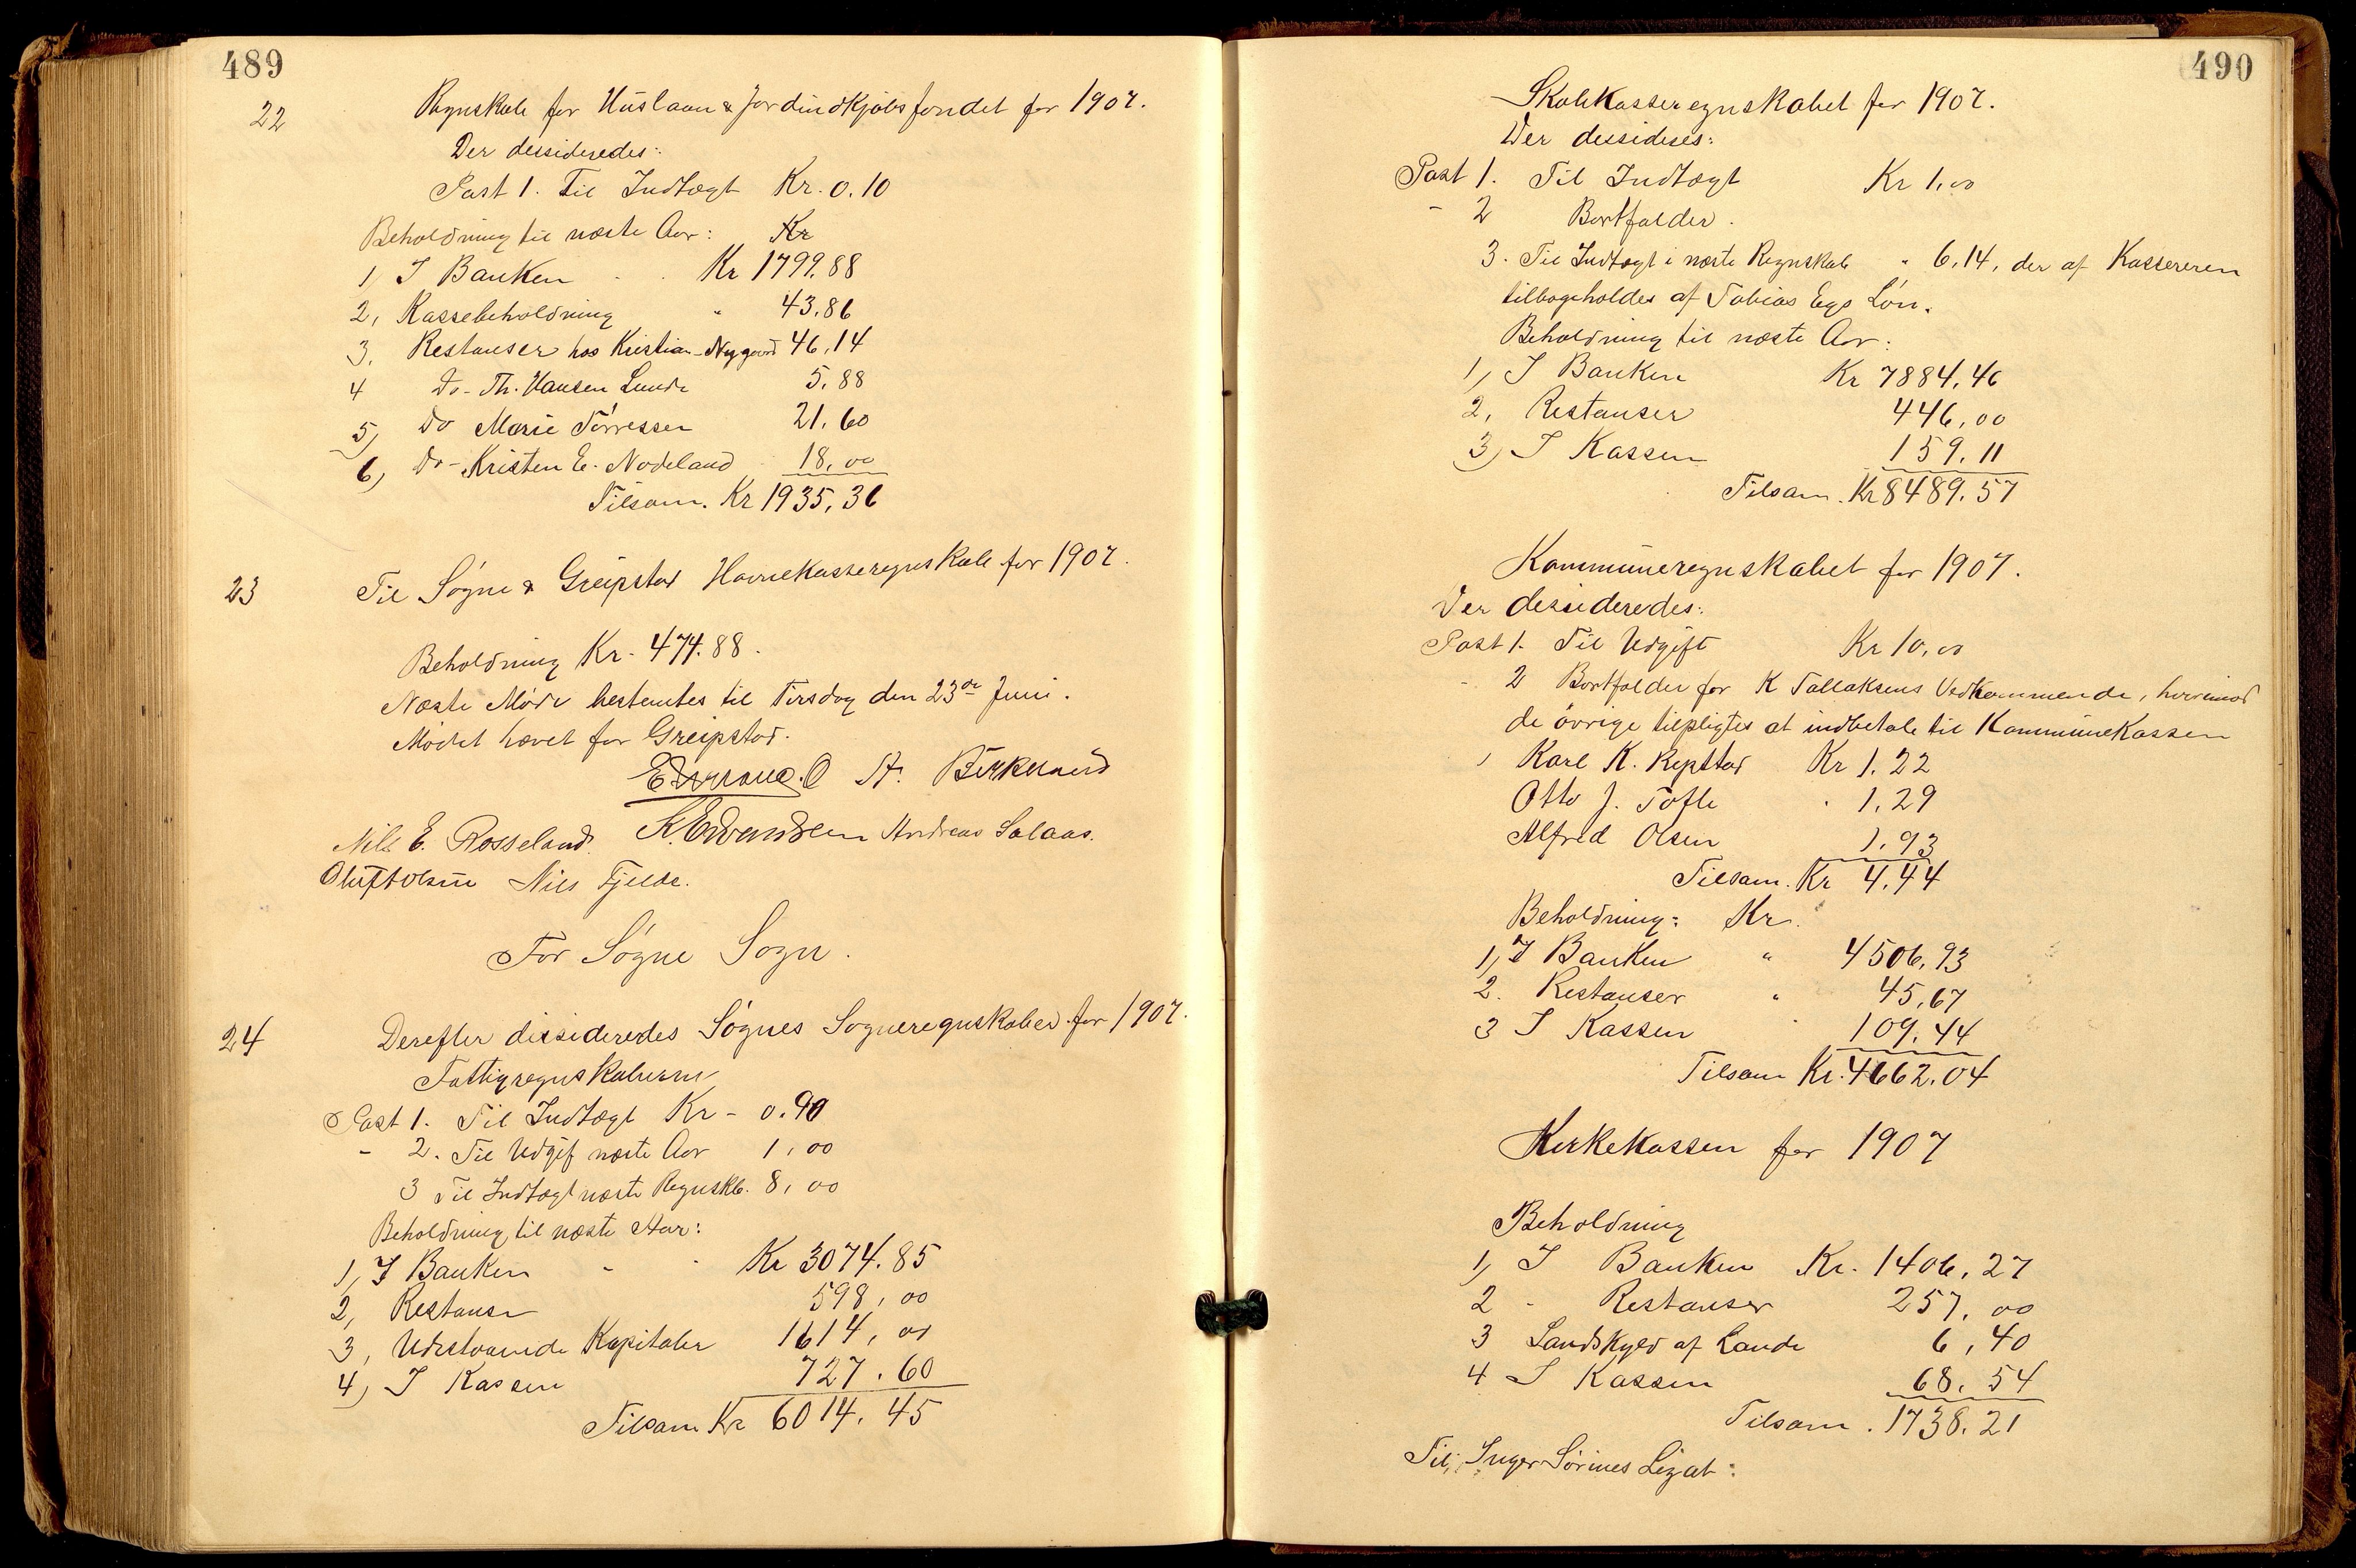 489
22 Regnskab for Huslaan & Jordindkjøbsfondet for 1907.
Der dessideredes:
Post 1. Til Indtægt Kr. 0.10
Beholdning til næste Aar: Kr
1) I Banken Kr 1799.88
2, Kassebeholdning " 43,86
3, Restanser hos Kristian Nygaard 46,14
4 Do - Th. Hansen Lunde 5.88
5) Do Marie Tørressen 21.60
6) Do - Kristen E. Nodeland 18,00
Tilsam. Kr 1935,36
23 Til Søgne & Greipstad Havnekasseregnskab for 1907.
Beholdning Kr. 474.88.
Næste Møde bestemtes til Tirsdag den 23de Juni.
Mødet hævet for Greipstad.
St. Birkeland
Nils E. Rosseland. K. Edvardsen Andreas Salaas.
Oluf Olsen Nils Fjelde.
For Søgne Sogn.
24 Derefter dissideredes Søgnes Sogneregnskaber for 1907.
Fattigregnskaberne
Post 1. Til Indtægt Kr - 0.90
- 2. Til Udgif næste Aar 1,00
3 Til Indtægt næste Regnskb. 8,00
Beholdning til næste Aar:
1, I Banken - - Kr 3074.85
2, Restanser 598,00
3, Udestaaende Kapitaler 1614,00
4) I Kassen 727.60
Tilsam Kr 6014.45
490
Skolekasseregnskabet for 1907.
Der dessideres:
Post 1. Til Indtægt Kr 1,00
- 2 Bortfalder.
3. Til Indtægt i næste Regnskab " 6,14, der af Kassereren
tilbageholdes af Tobias Eegs Løn.
Beholdning til næste Aar:
1, I Banken Kr 7884,46
2, Restanser 446,00
3) I Kassen 159.11
Tilsam. Kr 8489.57
Kommuneregnskabet for 1907.
Der dessideredes:
Post 1. Til Udgift Kr 10,00
- 2 Bortfalder for K Tallaksens Vedkommende, hvorimod
de øvrige tilpligtes at indbetale til Kommunekassen
Karl K. Repstad Kr 1.22
Otto J. Tofte . 1,29
Alfred Olsen 1,93
Tilsam. Kr 4,44
Beholdning: Kr.
1, I Banken " 4506,93
2. Restanser " 45,67
3 I Kassen 109,44
Tilsam Kr. 4662.04
Kirkekassen for 1907
Beholdning
1) I Banken Kr. 1406,27
2 - Restanser 257,00
3 Landskyld af Lande 6,40
4 I Kassen 68,54
Tilsam. 1738.21
Til Inger Sørines Legat: